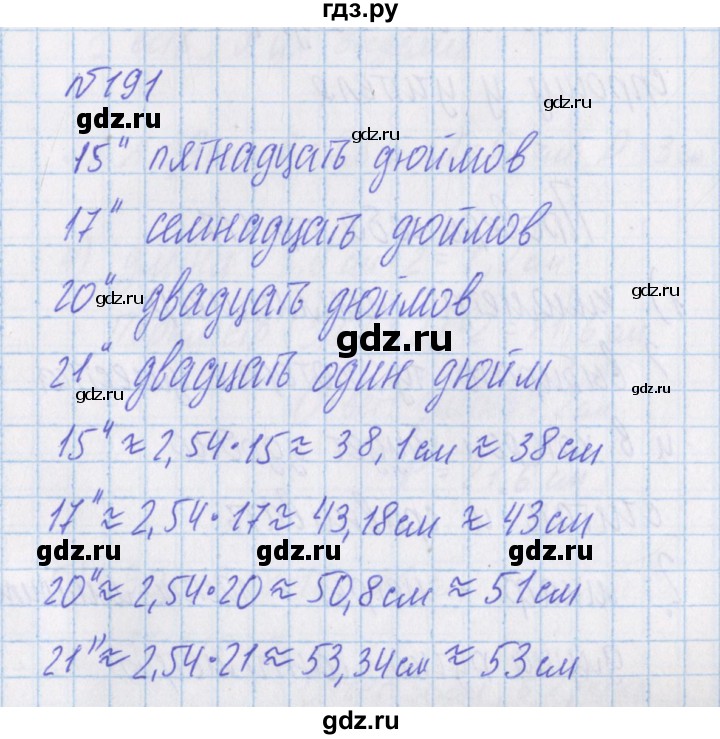 гдз.ру
№191
gdz.ru
gdz.ru
15" пятнадцать дюймов
gdz.ru
17" семнадцать дюймов
20" двадцать дюймов
gdz.ru
gdz.ru
gdz.ru
21" двадцать один дюйм
gdz.ru
gdz.ru
15" ≈ 2,54·15 ≈ 38,1 см ≈ 38 см
17" ≈ 2,54·17 ≈ 43,18 см ≈ 43 см
gdz.ru
gdz.ru
gdz.ru
20" ≈ 2,54·20 ≈ 50,8 см ≈ 51 см
21" ≈ 2,54·21 ≈ 53,34 см ≈ 53 см
gdz.ru